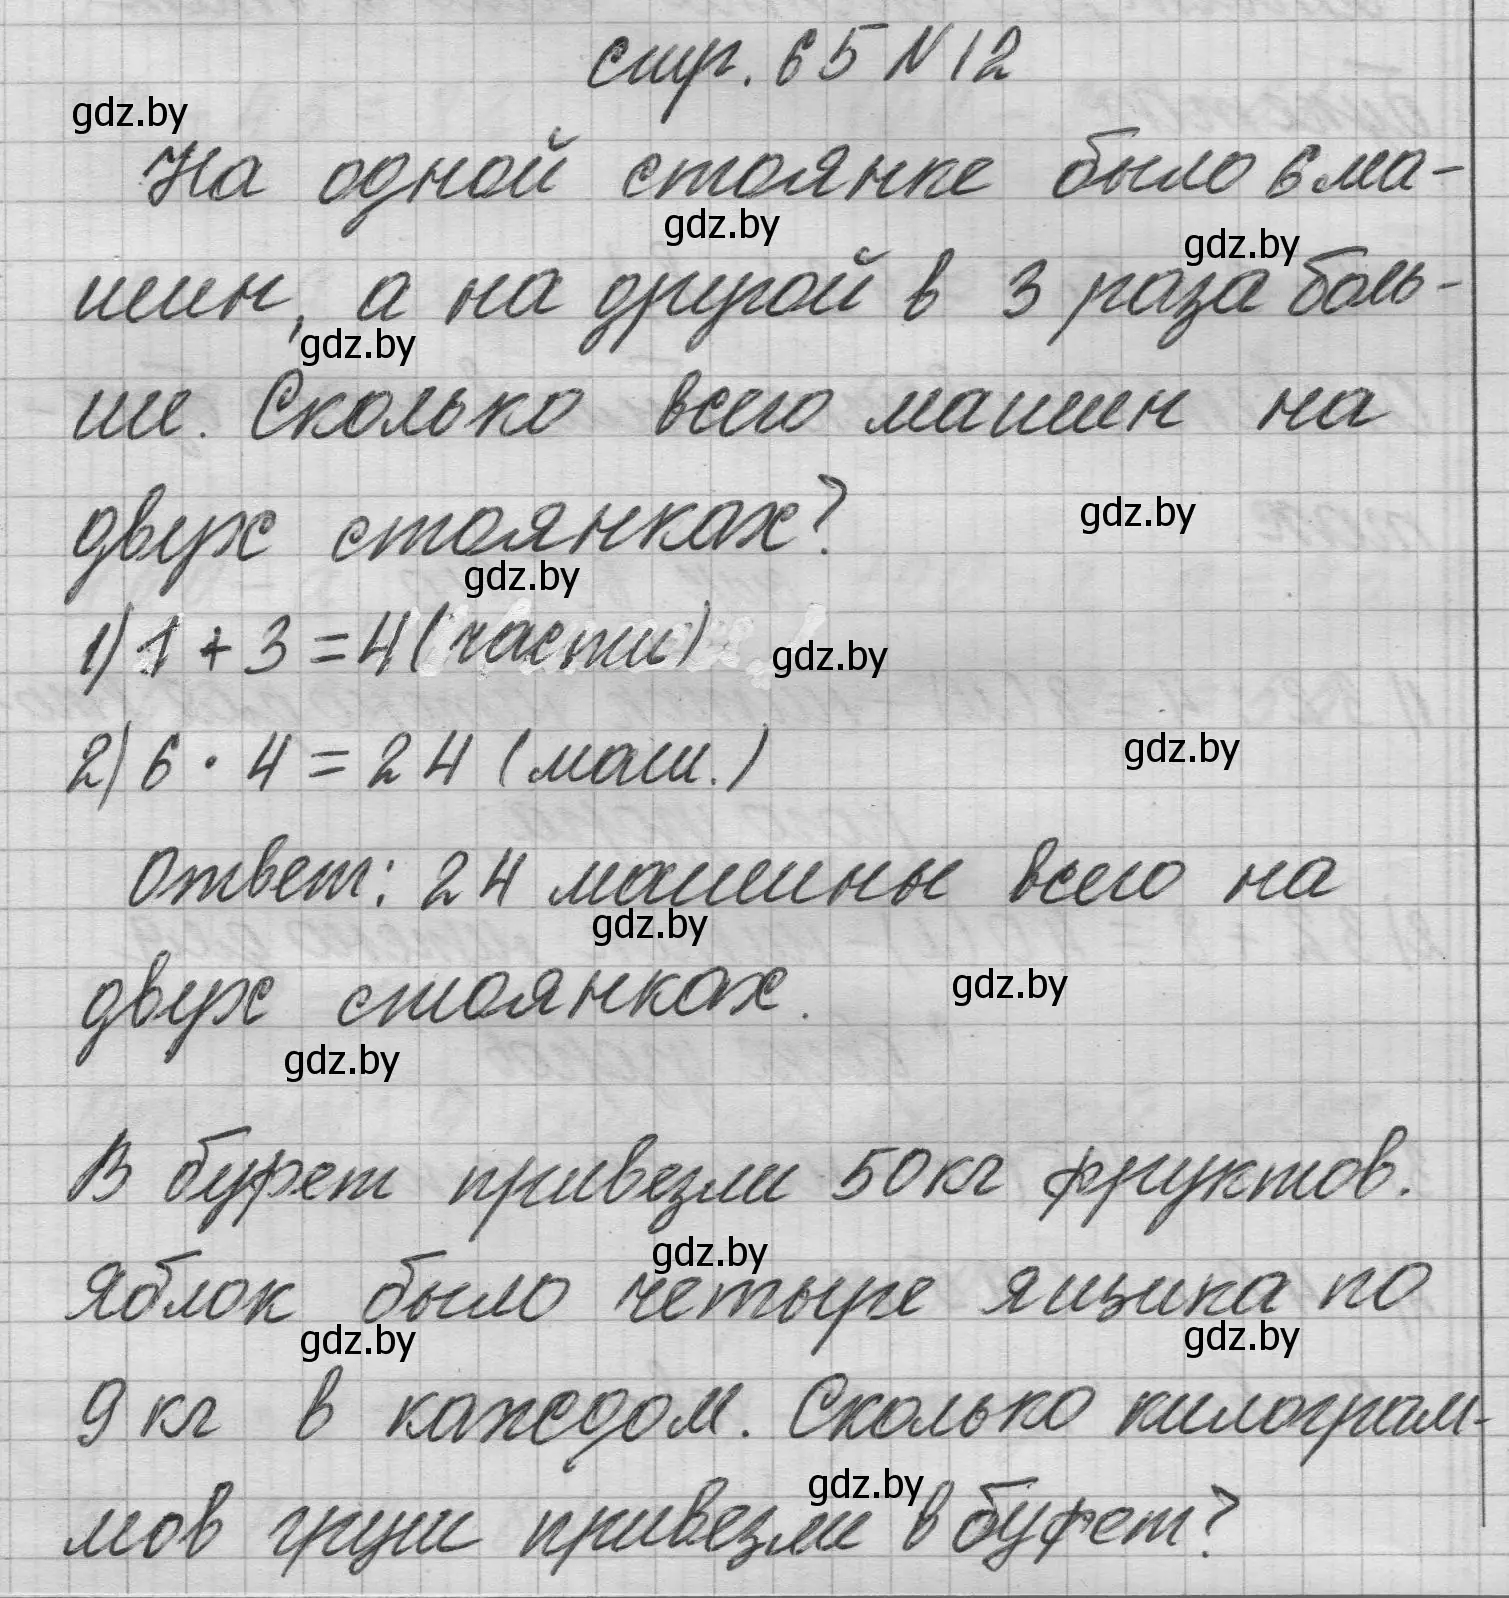 стр. 65 N 12
gdz.by
На одной стоянке было 6 ма-
gdz.by
gdz.by
шин, а на другой в 3 раза боль-
gdz.by
ше. Сколько всего машин на
двух стоянках?
gdz.by
gdz.by
1) 1 + 3 = 4 (части)
gdz.by
2) 6 · 4 = 24 (маш.)
gdz.by
Ответ: 24 машины всего на
gdz.by
двух стоянках.
gdz.by
gdz.by
В буфет привезли 50 кг фруктов.
gdz.by
Яблок было четыре ящика по
gdz.by
gdz.by
9 кг в каждом. Сколько килограм-
gdz.by
мов груш привезли в буфет?